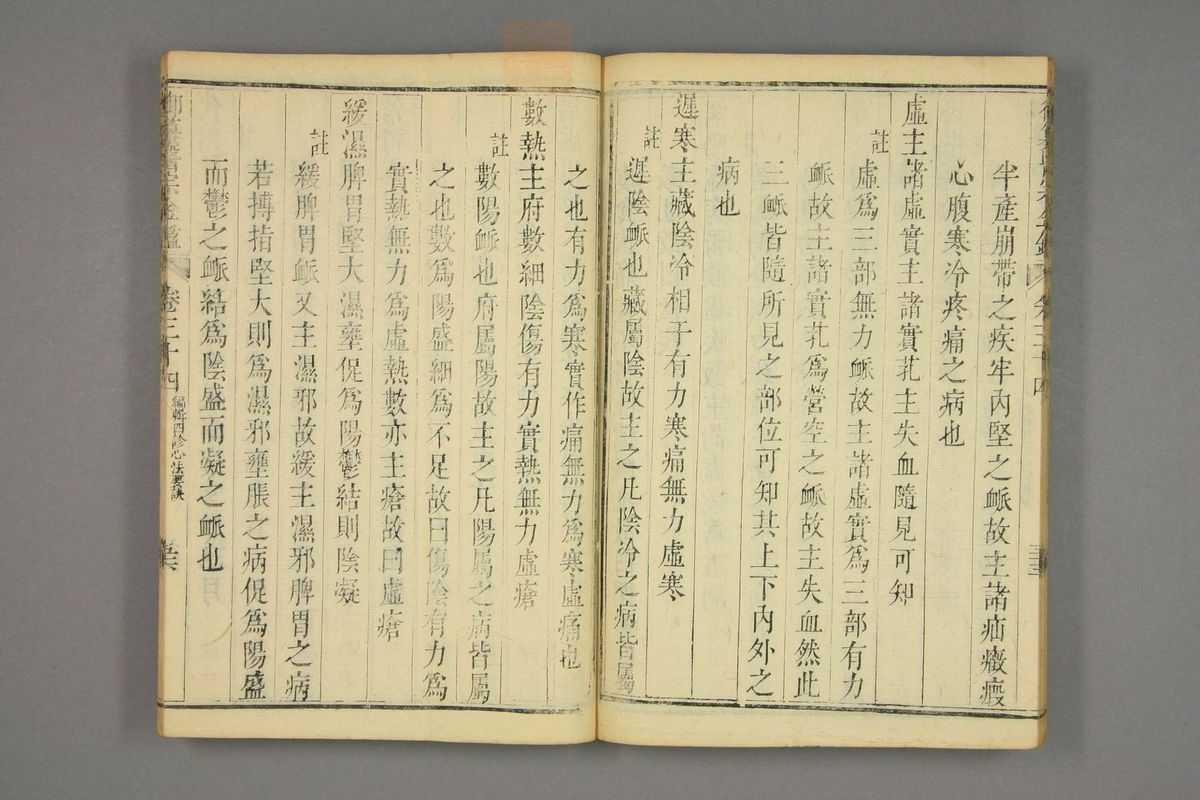 半產崩帶之疾牢內堅之𧖴故主諸疝癥瘕
心腹寒冷疼痛之病也
虛主諸虛實主諸實芤主失血隨見可知
註
虛爲三部無力𧖴故主諸虛實爲三部有力
𧖴故主諸實芤爲營空之𧖴故主失血然此
三𧖴皆隨所見之部位可知其上下內外之
病也
遲寒主藏陰冷相于有力寒痛無力虛寒
註
遲陰𧖴也藏屬陰故主之凡陰冷之病皆屬
之也有力爲寒實作痛無力爲寒虛痛也
數熱主府數細陰傷有力實熱無力虛瘡
註
數陽𧖴也府屬陽故主之凡陽屬之病皆屬
之也數爲陽盛細爲不足故曰傷陰有力爲
實熱無力爲虛熱數亦主瘡故曰虛瘡
緩濕脾胃堅大濕壅促爲陽鬱結則陰凝
註
緩脾胃𧖴又主濕邪故緩主濕邪脾胃之病
若搏指堅大則爲濕邪壅脹之病促爲陽盛
而鬱之𧖴結爲陰盛而凝之𧖴也
卷三十四 編輯四診心法要訣